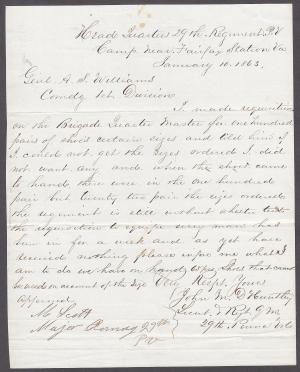 Head Quarters 29th Regiment P.V.
Camp near Fairfax Station Va
January 10. 1863.
Genl A. S. Williams
Comdg 1st Division
I made requisition
on the Brigade Quarter Master for one hundred
pairs of shoes certain sizes and told him if
I could not get the sizes ordered I did
not want any and when the shoes came
to hand there were in the one hundred
pair but twenty two pair the sizes ordered
the regiment is still without shoes
the requisition to equip every man has
bin in for a week and as yet have
received nothing please infore me what I
am to do we have on hand pair Shoes that cannot
be used on account of the size Very Respt. Yours
Approved John M.
M Scott Lieut. & R. Q M
Major Comdg 29th 29th Penna Vols
P.V.